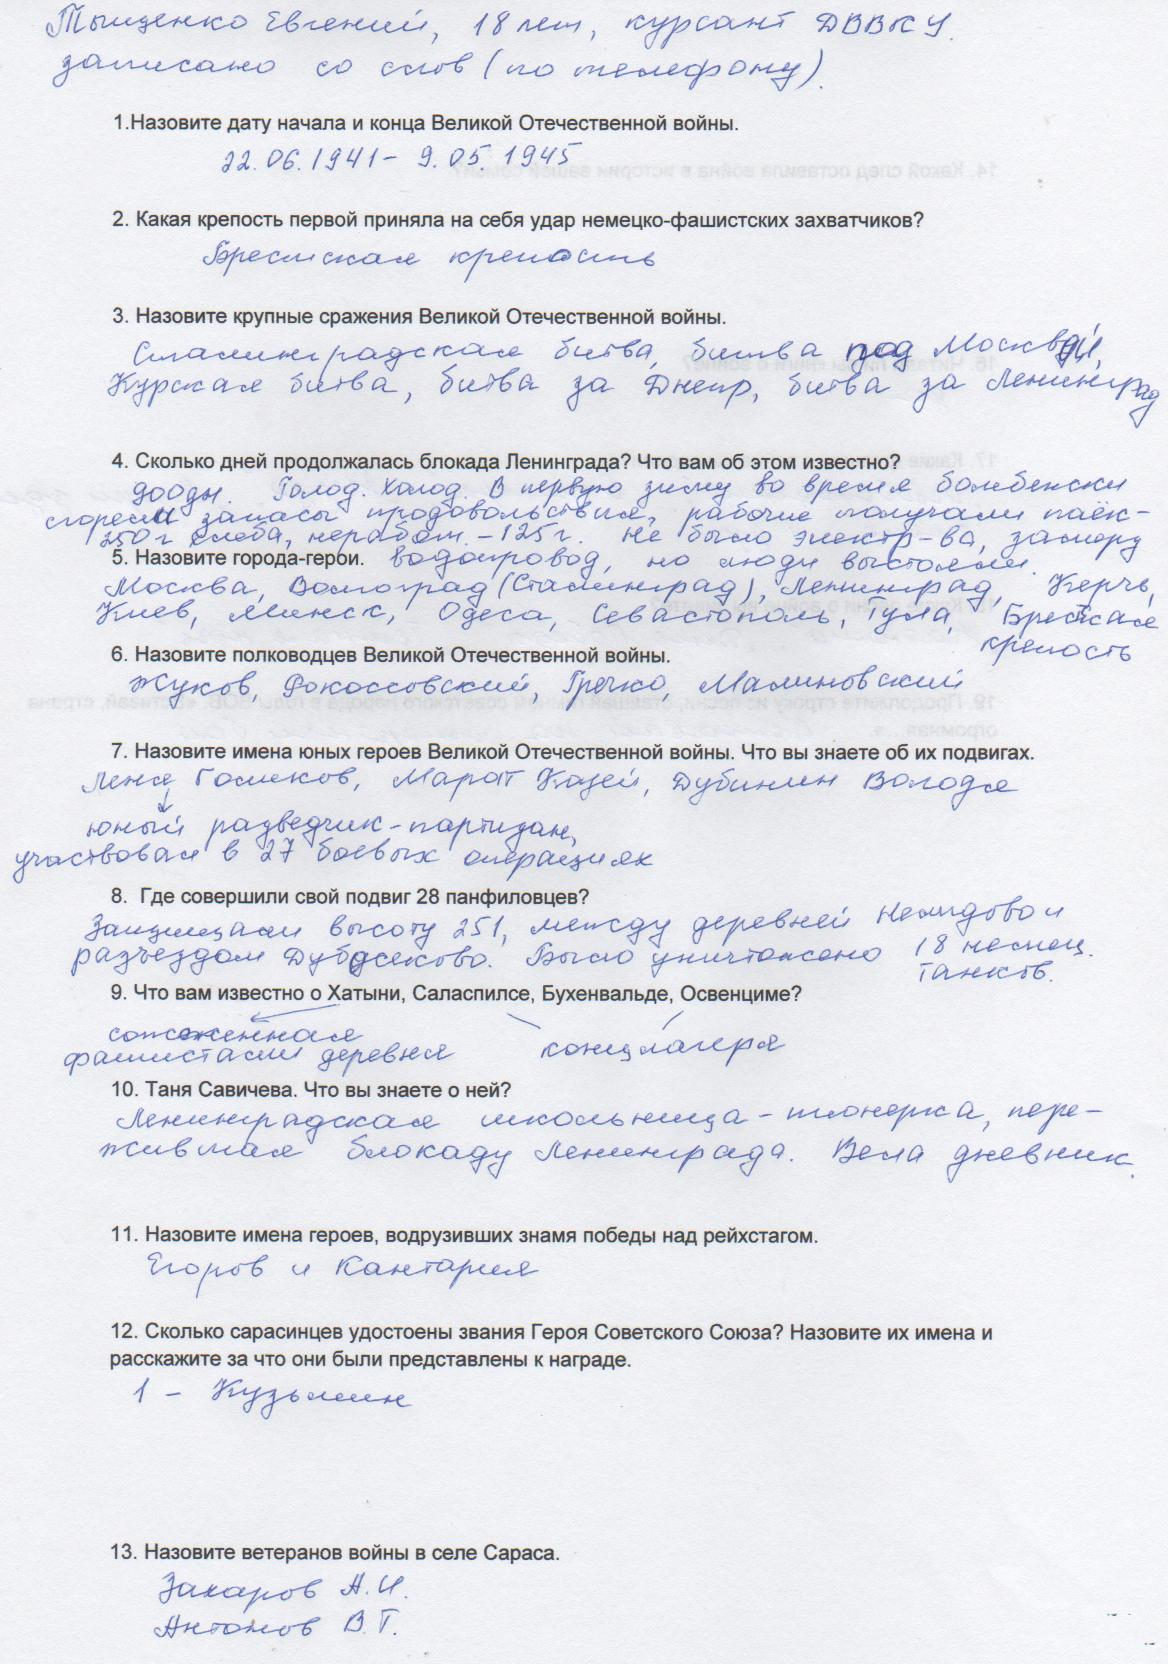 Тыщенко Евгений, 18 лет, курсант ДВВКУ.
записано со слов (по телефону).
1.Назовите дату начала и конца Великой Отечественной войны.
22.06.1941- 9.05.1945
2. Какая крепость первой приняла на себя удар немецко-фашистских захватчиков?
Брестская крепость
3. Назовите крупные сражения Великой Отечественной войны.
Сталинградская битва, битва под Москвой,
Курская битва, битва за Днепр, битва за Ленинград
4. Сколько дней продолжалась блокада Ленинграда? Что вам об этом известно?
900дн. Голод. Холод. В первую зиму во время бомбежски
сгорели запасы продовольствия, рабочие получали паёк-
250г хлеба, неработ. - 125г. Не было электр-ва, замерз
5. Назовите города-герои. водопровод, но люди выстояли.
Москва, Волгоград (Сталинград), Ленинград, Керчь,
Киев, Минск, Одеса, Севастополь, Тула, Брестская
крепость
6. Назовите полководцев Великой Отечественной войны.
Жуков, Рокоссовский, Гречко, Малиновский
7. Назовите имена юных героев Великой Отечественной войны. Что вы знаете об их подвигах.
Леня Голиков, Марат Козей, Дубинин Володя
юный разведчик-партизан,
участвовал в 27 боевых операциях
8. Где совершили свой подвиг 28 панфиловцев?
Защищали высоту 251, между деревней Нелидово и
разъездом Дубосеково. Было уничтожено 18 немец.
танков.
9. Что вам известно о Хатыни, Саласпилсе, Бухенвальде, Освенциме?
сожженная
фашистами деревня концлагеря
10. Таня Савичева. Что вы знаете о ней?
Ленинградская школьница - пионерка, пере-
жившая блокаду Ленинграда. Вела дневник.
11. Назовите имена героев, водрузивших знамя победы над рейхстагом.
Егоров и Кантария
12. Сколько сарасинцев удостоены звания Героя Советского Союза? Назовите их имена и
расскажите за что они были представлены к награде.
1 - Кузьмин
13. Назовите ветеранов войны в селе Сараса.
Захаров А.И.
Антонов В.Т.